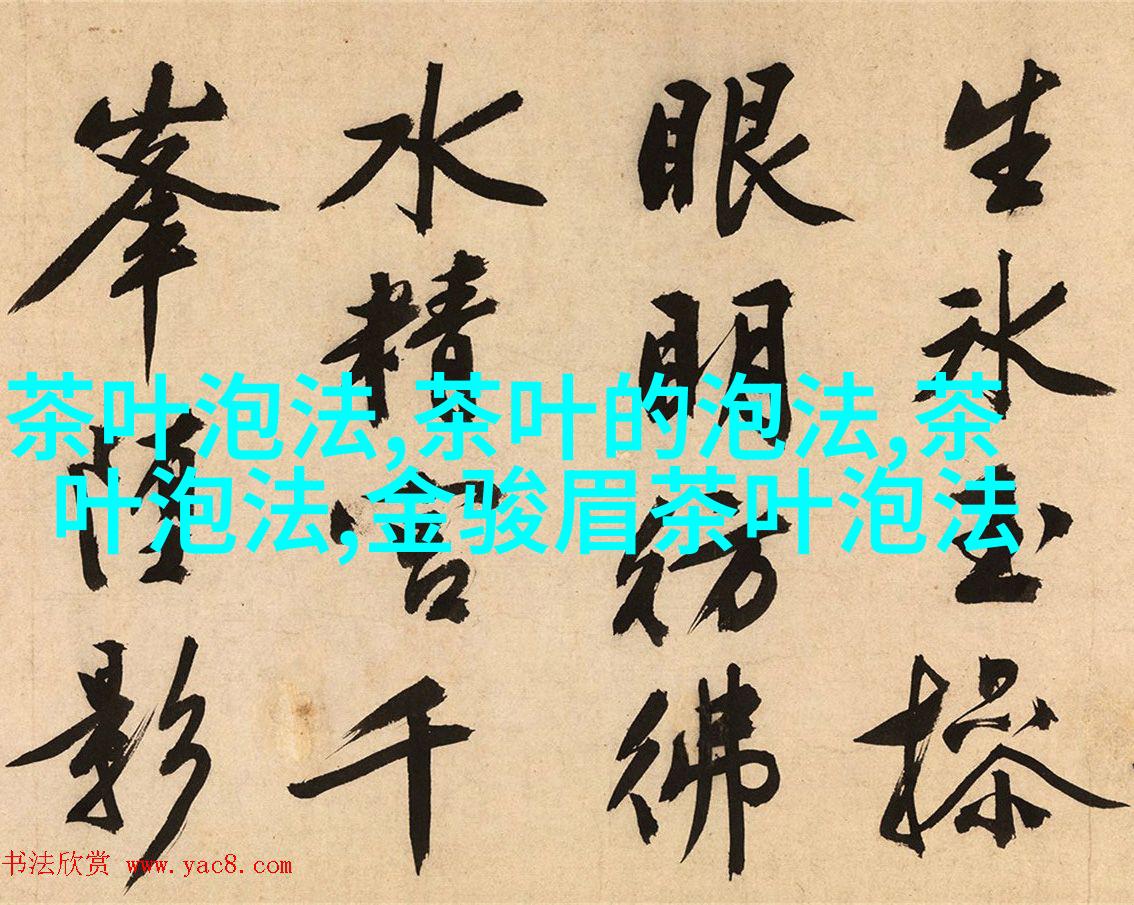 生氷玉操
眼明彷彿
水精宮千
峯影
茶叶泡法,茶叶的泡法,茶
叶泡法,金骏眉茶叶泡法
书法欣赏 www.yac8.com